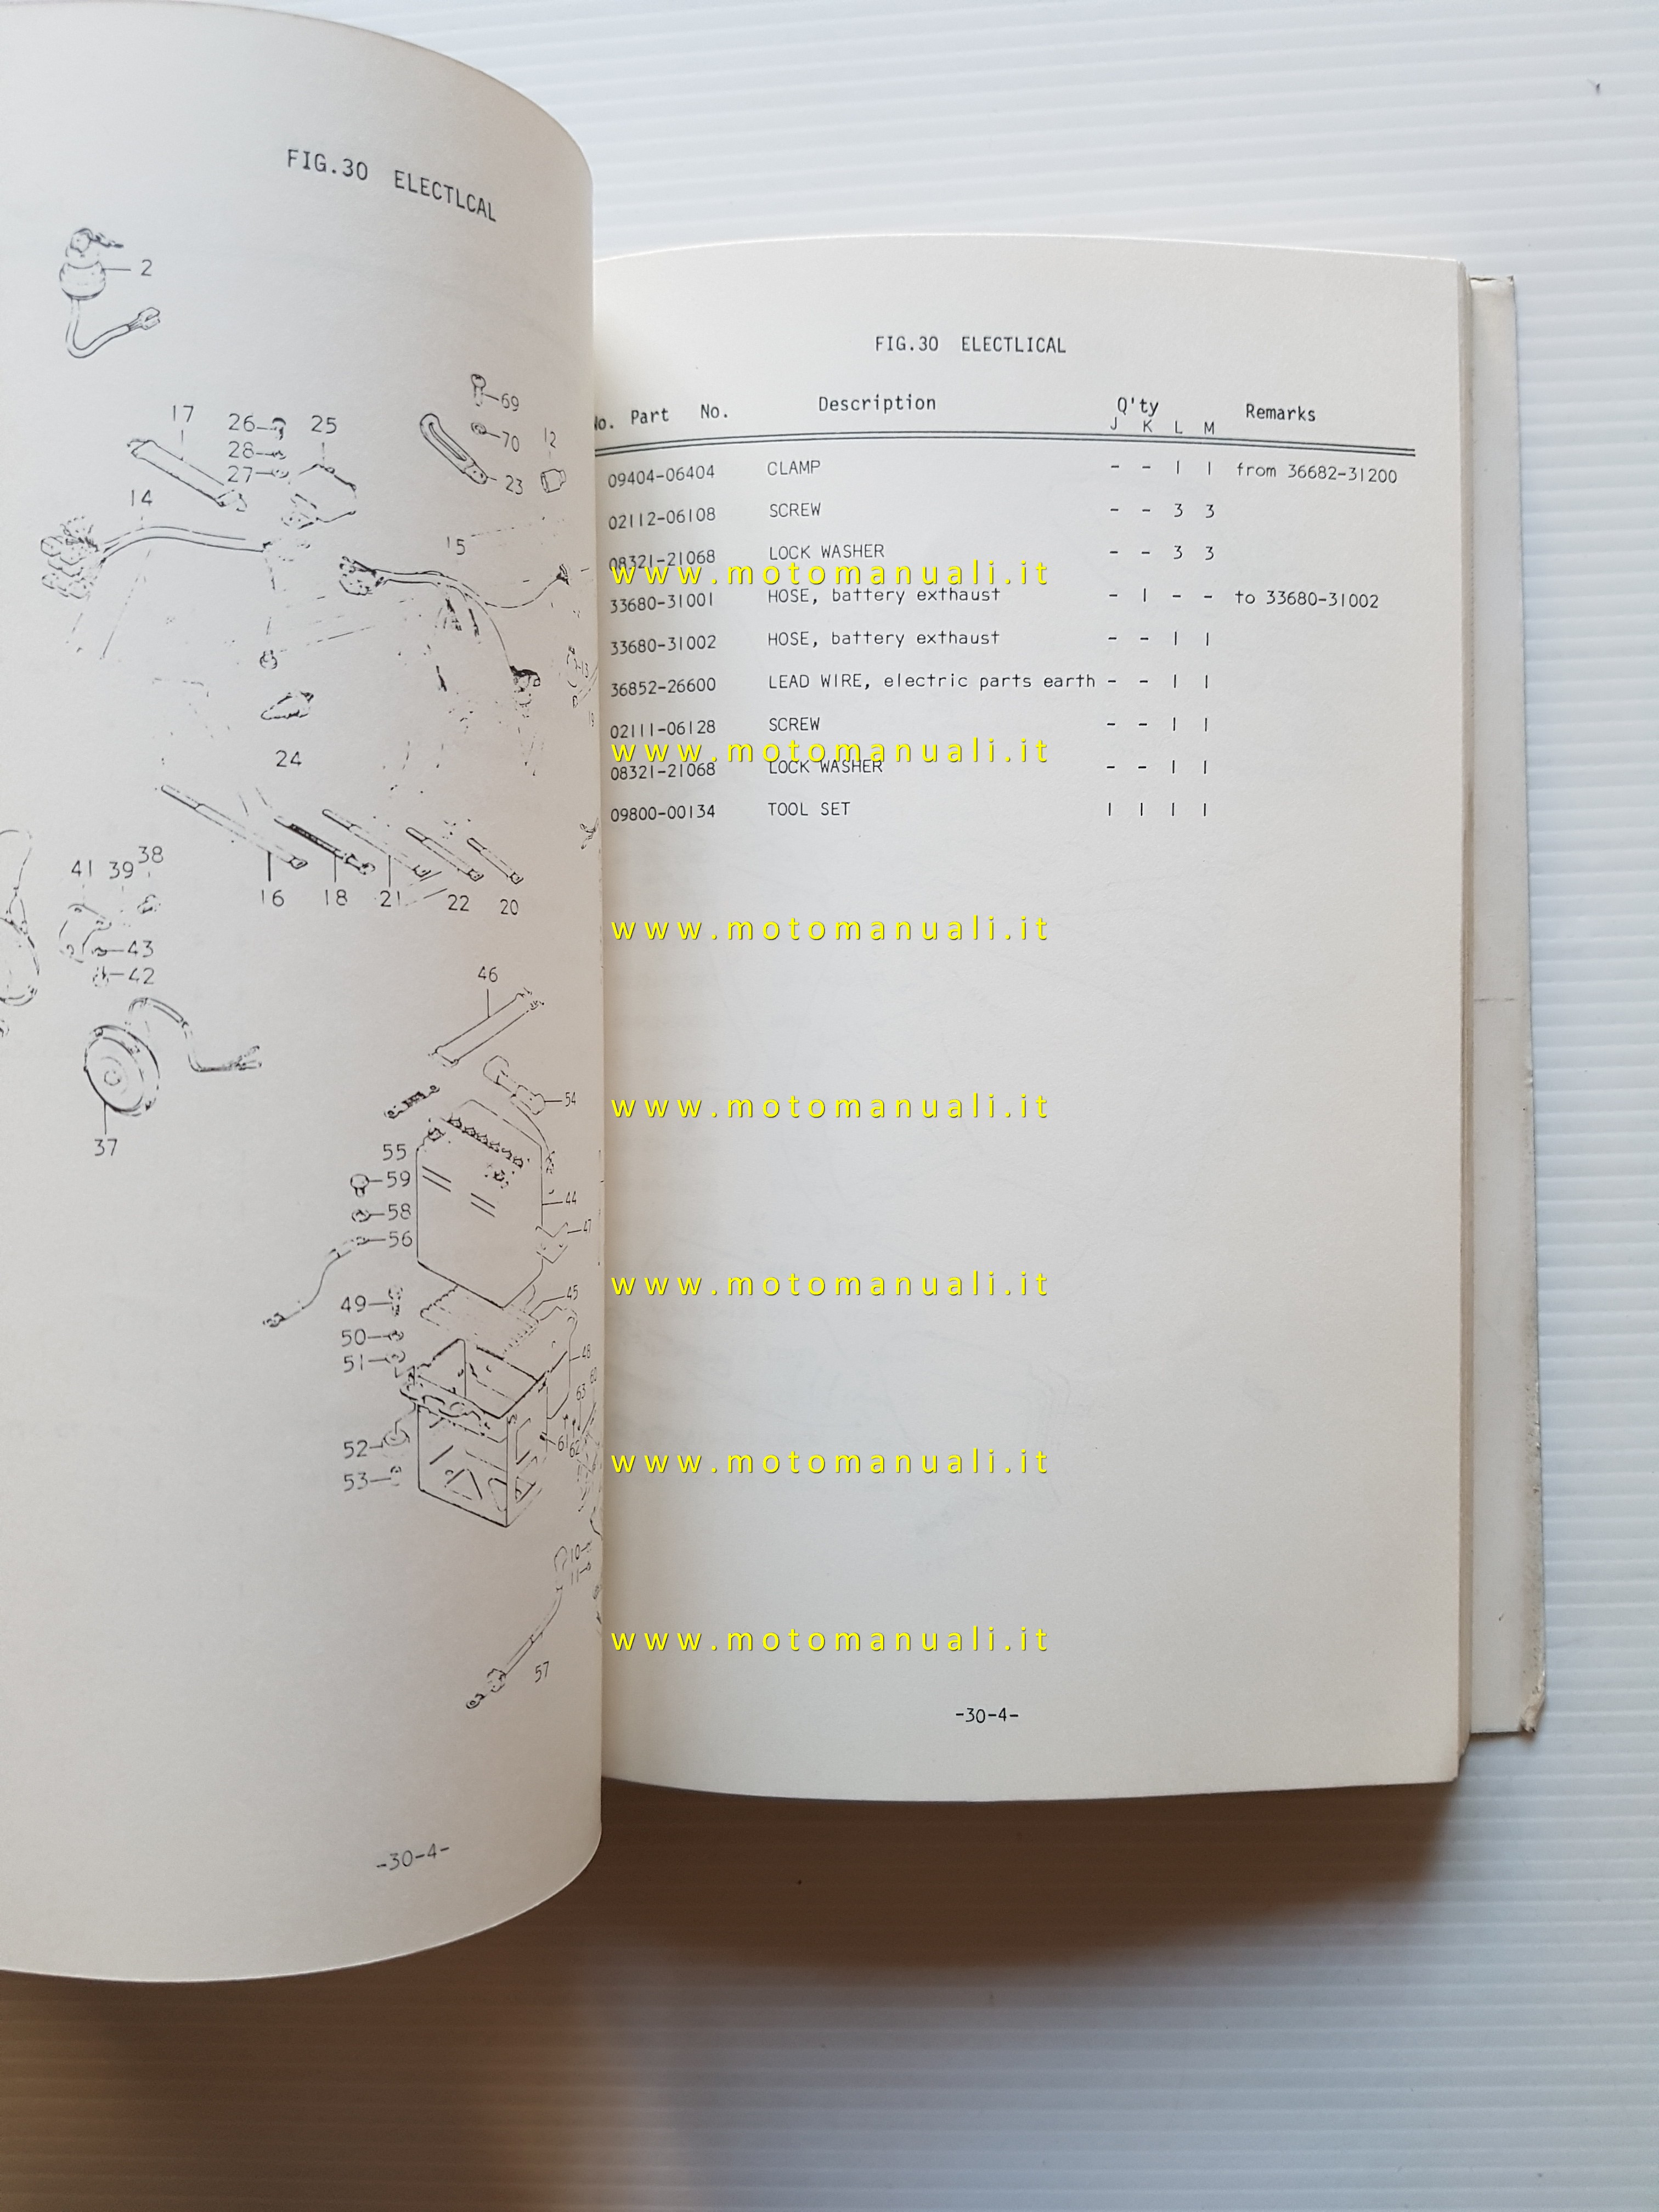 FIG.30 ELECTLCAL
2
69
70
12
17
26
25
28
27
23
14
15
13
24
16
18
21
22
20
41
39
38
43
42
46
54
37
55
59
58
44
47
56
45
49
50
51
48
63
60
61
62
52
53
10
11
57
-30-4-
FIG.30 ELECTLICAL
No. Part No. Description Q'ty Remarks
J K L M
09404-06404 CLAMP - - 1 1 from 36682-31200
02112-06108 SCREW - - 3 3
08321-21068 LOCK WASHER - - 3 3
www.motomanuali.it
33680-31001 HOSE, battery exhaust - 1 - - to 33680-31002
33680-31002 HOSE, battery exhaust - - 1 1
36852-26600 LEAD WIRE, electric parts earth - - 1 1
02111-06128 SCREW - - 1 1
www.motomanuali.it
08321-21068 LOCK WASHER - - 1 1
09800-00134 TOOL SET 1 1 1 1
www.motomanuali.it
www.motomanuali.it
www.motomanuali.it
www.motomanuali.it
www.motomanuali.it
-30-4-